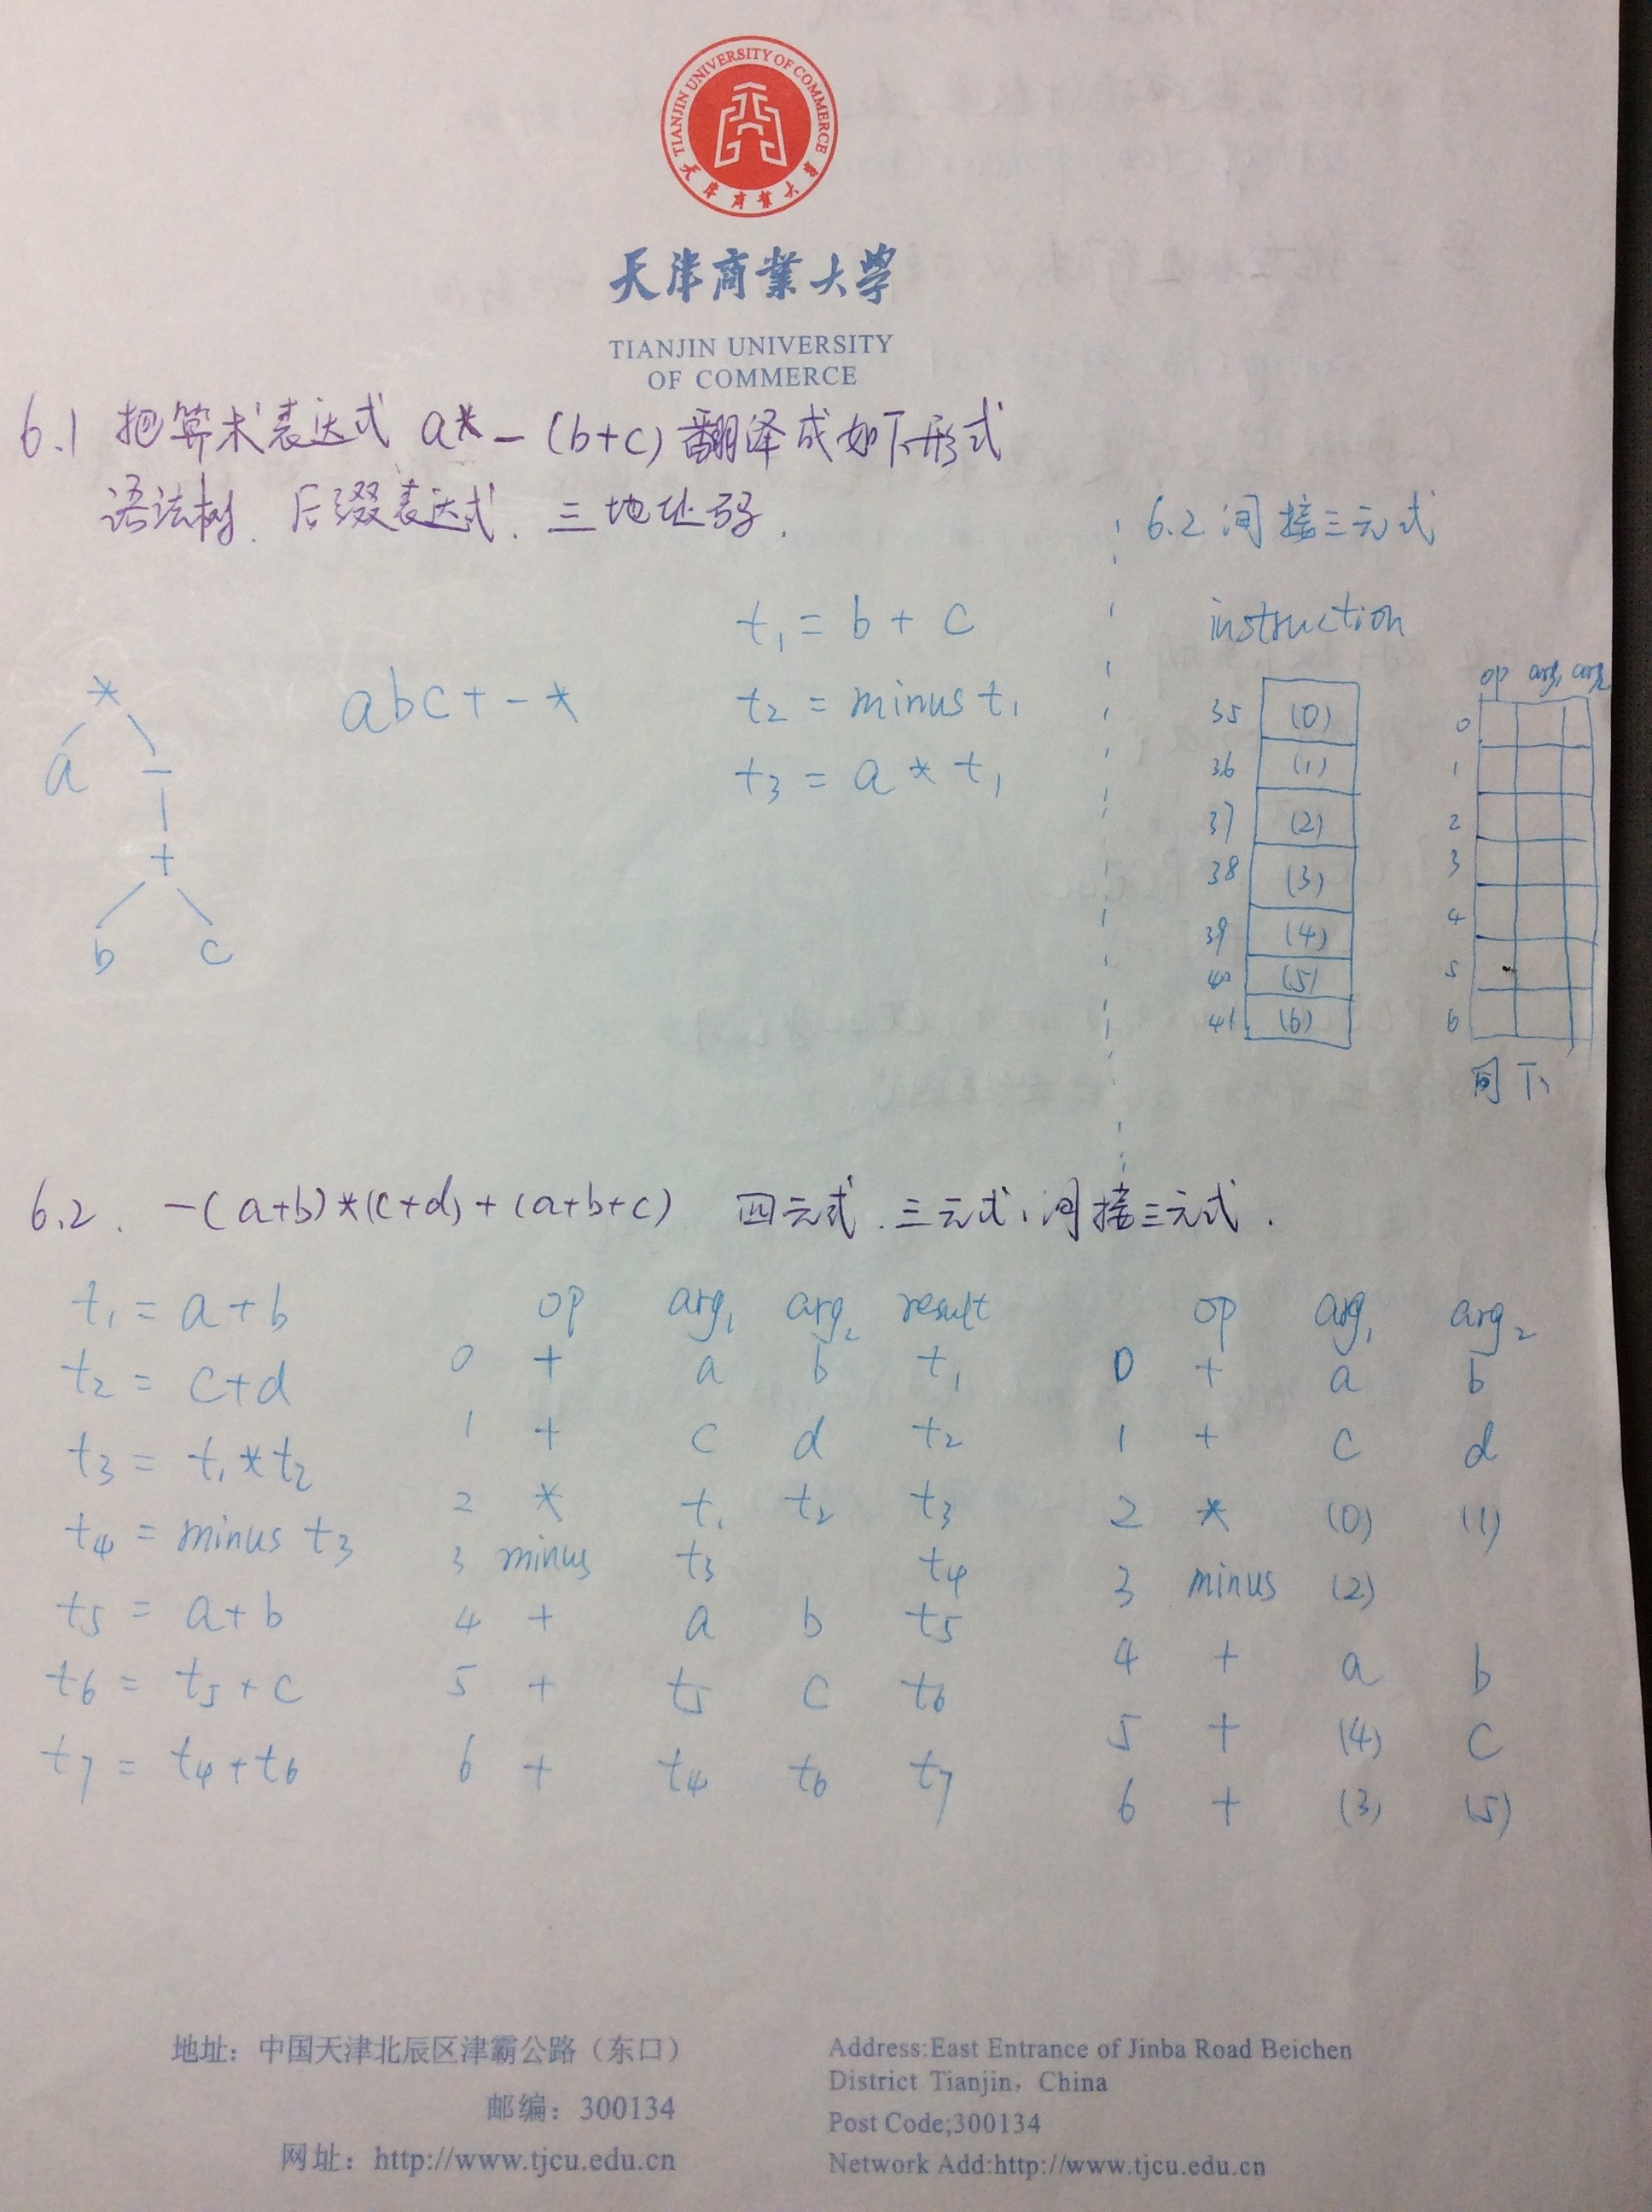 TIANJIN UNIVERSITY OF COMMERCE
天津商業大学
天津商業大学
TIANJIN UNIVERSITY
OF COMMERCE
6.1 把算术表达式 a*-(b+c) 翻译成如下形式
语法树、后缀表达式、三地址码.
*
a -
+
b c
abc+-*
t₁ = b + c
t₂ = minus t₁
t₃ = a * t₁
6.2 间接三元式
instruction
35 (0)
36 (1)
37 (2)
38 (3)
39 (4)
40 (5)
41 (6)
op arg₁ arg₂
0
1
2
3
4
5
6
同下
6.2. -(a+b)*(c+d)+(a+b+c) 四元式、三元式、间接三元式.
t₁ = a+b
t₂ = c+d
t₃ = t₁*t₂
t₄ = minus t₃
t₅ = a+b
t₆ = t₅+c
t₇ = t₄+t₆
op arg₁ arg₂ result
0 + a b t₁
1 + c d t₂
2 * t₁ t₂ t₃
3 minus t₃ t₄
4 + a b t₅
5 + t₅ c t₆
6 + t₄ t₆ t₇
op arg₁ arg₂
0 + a b
1 + c d
2 * (0) (1)
3 minus (2)
4 + a b
5 + (4) c
6 + (3) (5)
地址：中国天津北辰区津霸公路（东口）
邮编：300134
网址：http://www.tjcu.edu.cn
Address:East Entrance of Jinba Road Beichen
District Tianjin, China
Post Code;300134
Network Add:http://www.tjcu.edu.cn